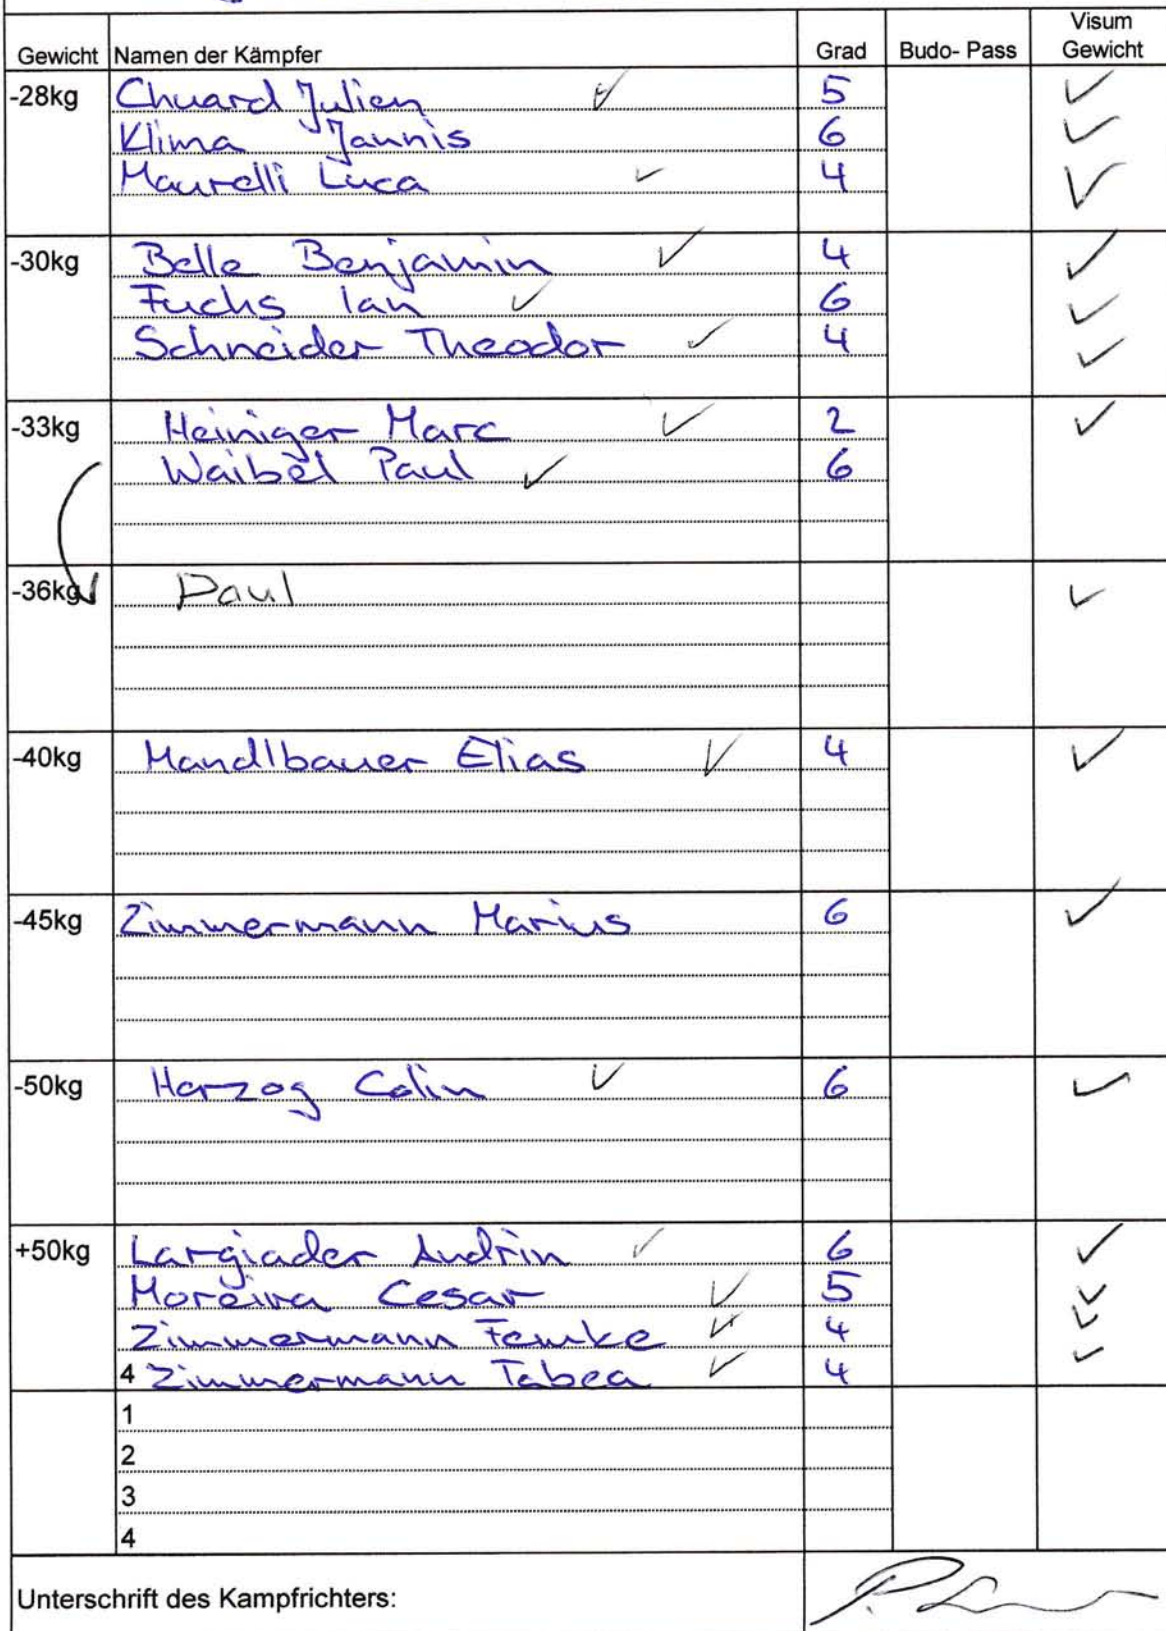 Visum
Gewicht Namen der Kämpfer Grad Budo- Pass Gewicht
-28kg Chuard Julien ✓ 5 ✓
Klima Jannis 6 ✓
Maurelli Luca ✓ 4 ✓
-30kg Belle Benjamin ✓ 4 ✓
Fuchs Ian ✓ 6 ✓
Schneider Theodor ✓ 4 ✓
-33kg Heiniger Marc ✓ 2 ✓
Waibel Paul ✓ 6
-36kg Paul ✓
-40kg Mandlbauer Elias ✓ 4 ✓
-45kg Zimmermann Marius 6 ✓
-50kg Herzog Colin ✓ 6 ✓
+50kg Largiader Andrin ✓ 6 ✓
Moreira Cesar ✓ 5 ✓
Zimmermann Femke ✓ 4 ✓
4 Zimmermann Tabea ✓ 4 ✓
1
2
3
4
Unterschrift des Kampfrichters: